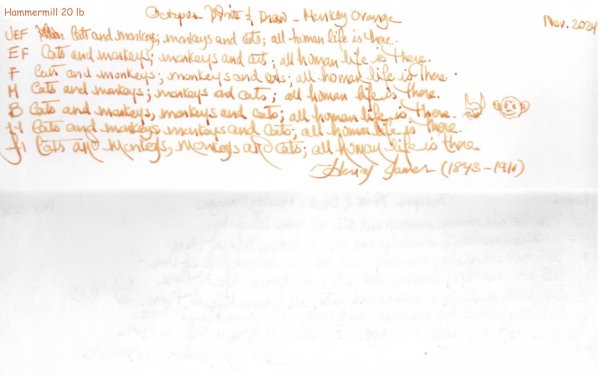 Hammermill 20 lb
Octopus Write & Draw - Monkey Orange
Nov. 2024
UEF Cats and monkeys; monkeys and cats; all human life is there.
EF Cats and monkeys; monkeys and cats; all human life is there.
F Cats and monkeys; monkeys and cats; all human life is there.
M Cats and monkeys; monkeys and cats; all human life is there.
B Cats and monkeys, monkeys and cats; all human life is there.
1.1 Cats and monkeys, monkeys and cats; all human life is there.
Cats and Monkeys, Monkeys and Cats; all human life is there.
Henry James (1843-1916)